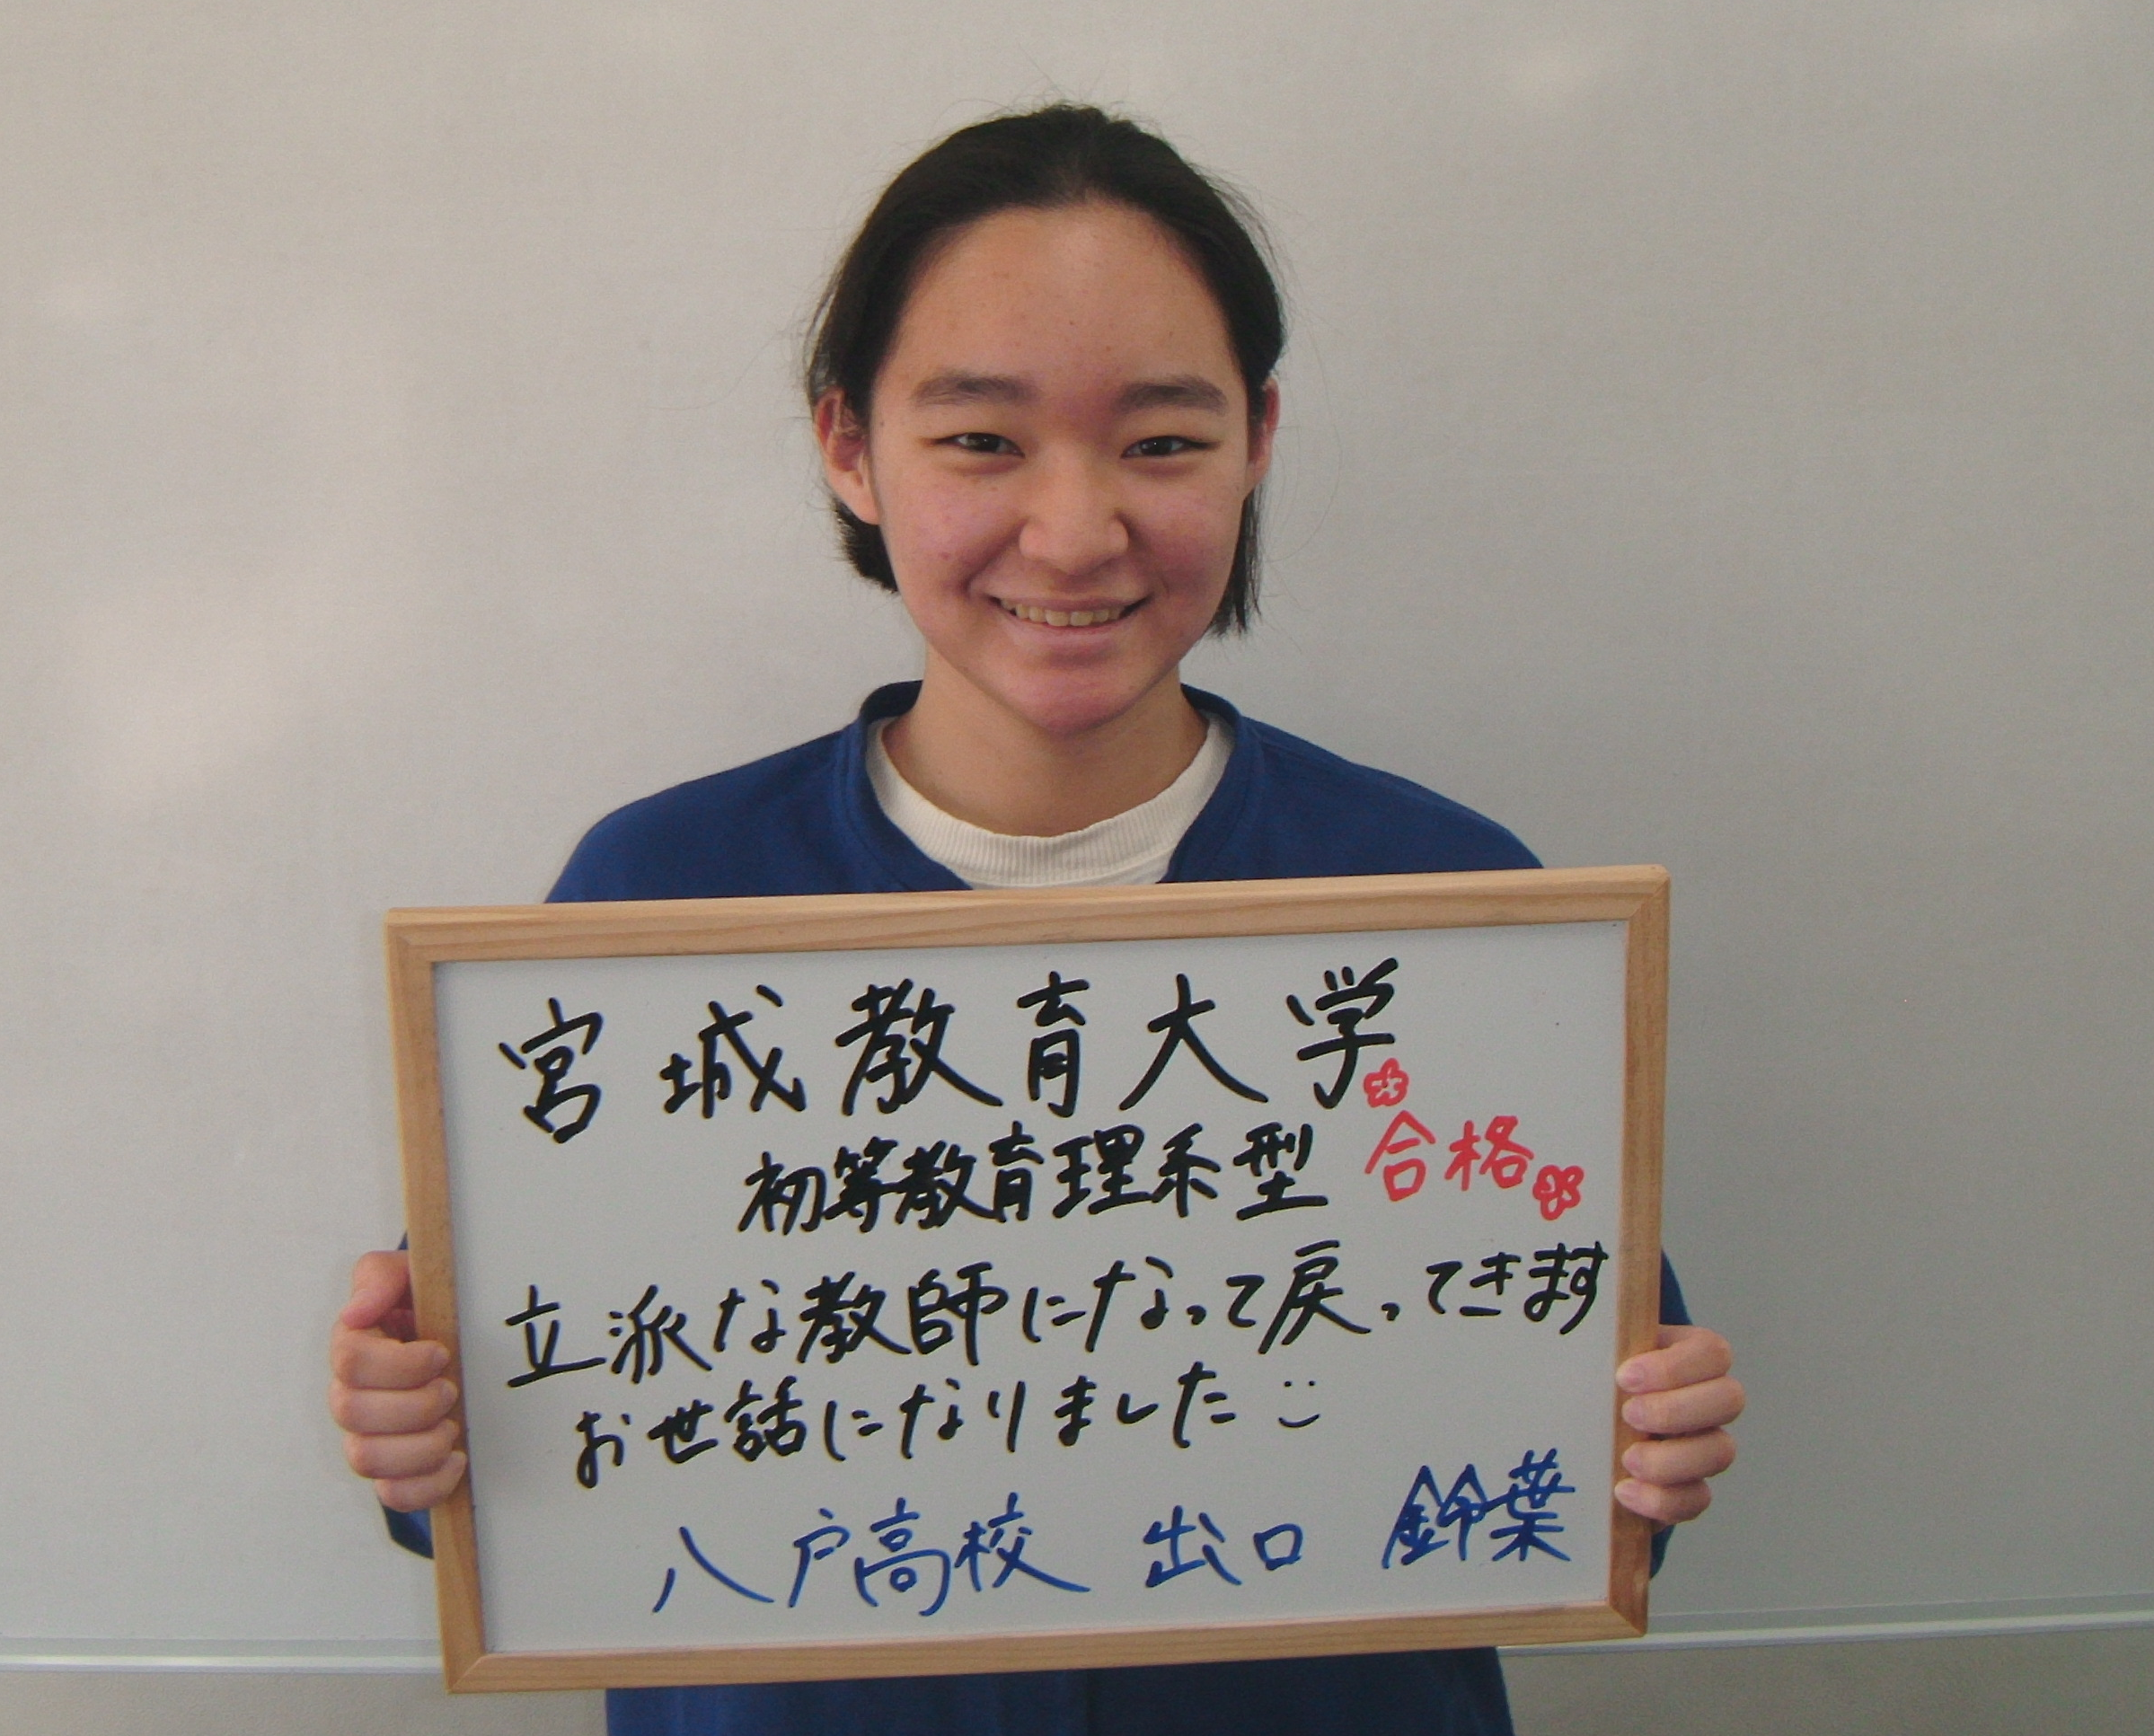 宮城教育大学
初等教育理系型 合格
立派な教師になって戻ってきます
お世話になりました
八戸高校 出口 鈴葉